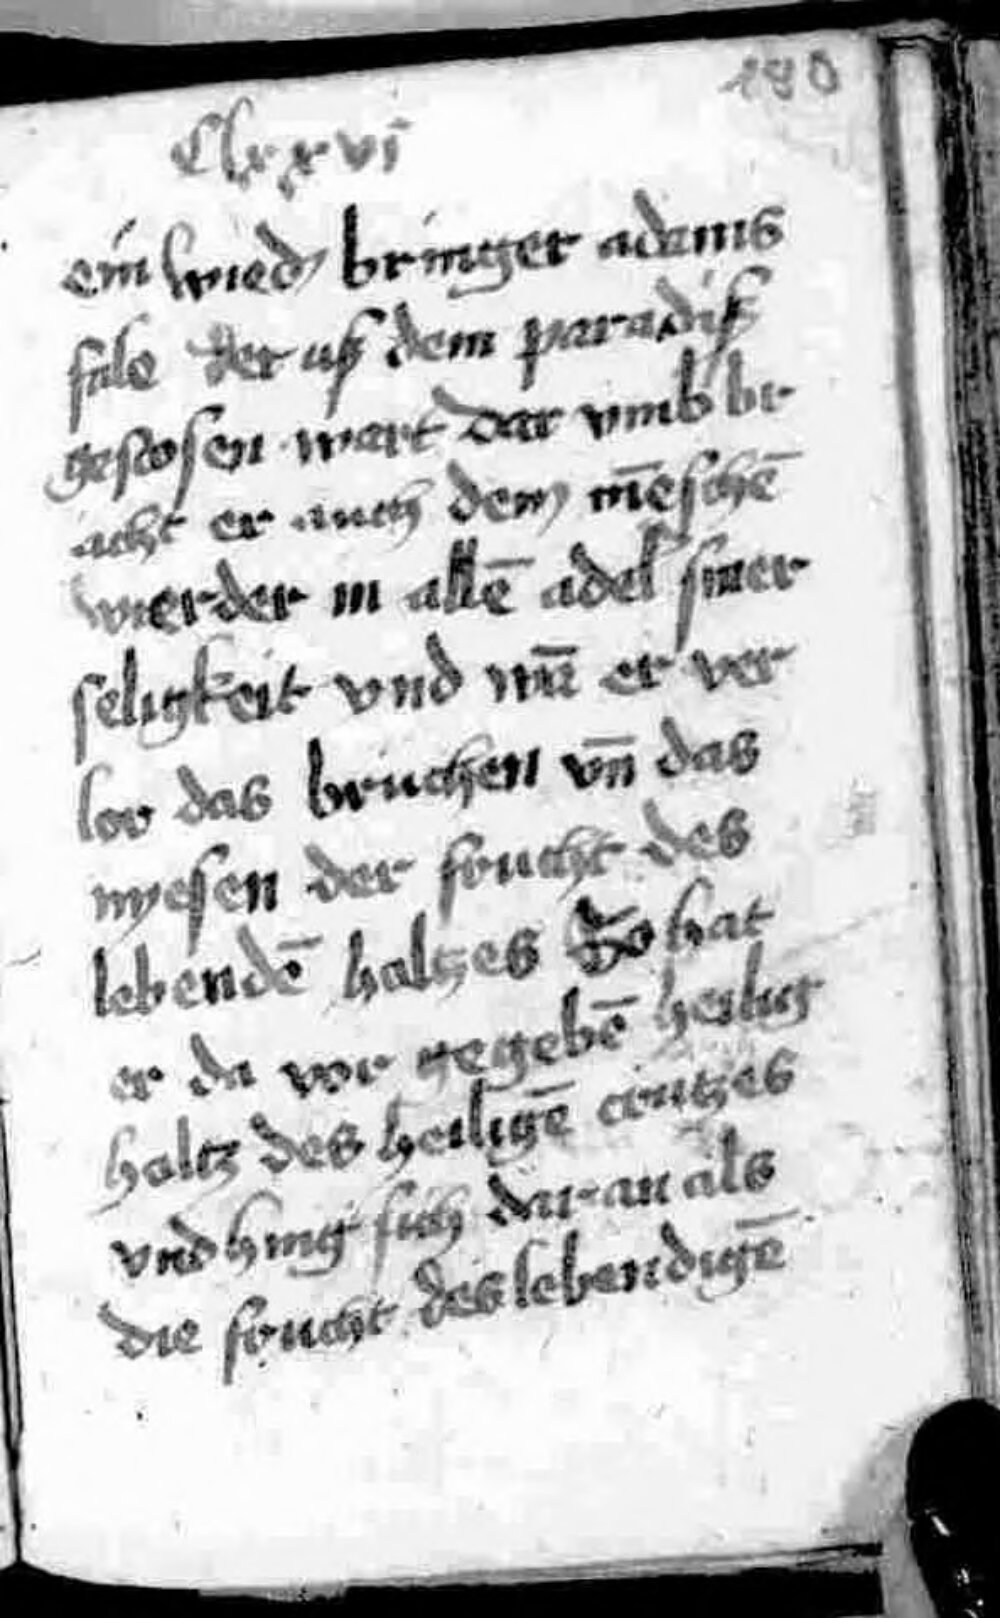 180
Clxxvi
ein wied bringer adams
fale der uß dem paradiß
gestosen wart dar vmb br
acht er auch dem mēschē
wierder in allē adel siner
seligkeit vnd wān er ver
lor das bruchen vn̄ das
nyesen der froucht des
lebendē holtzes So hat
er da vor gegebē heilig
holtz des heiligē crutzes
vnd hing sich dar an als
die froucht des lebendigē